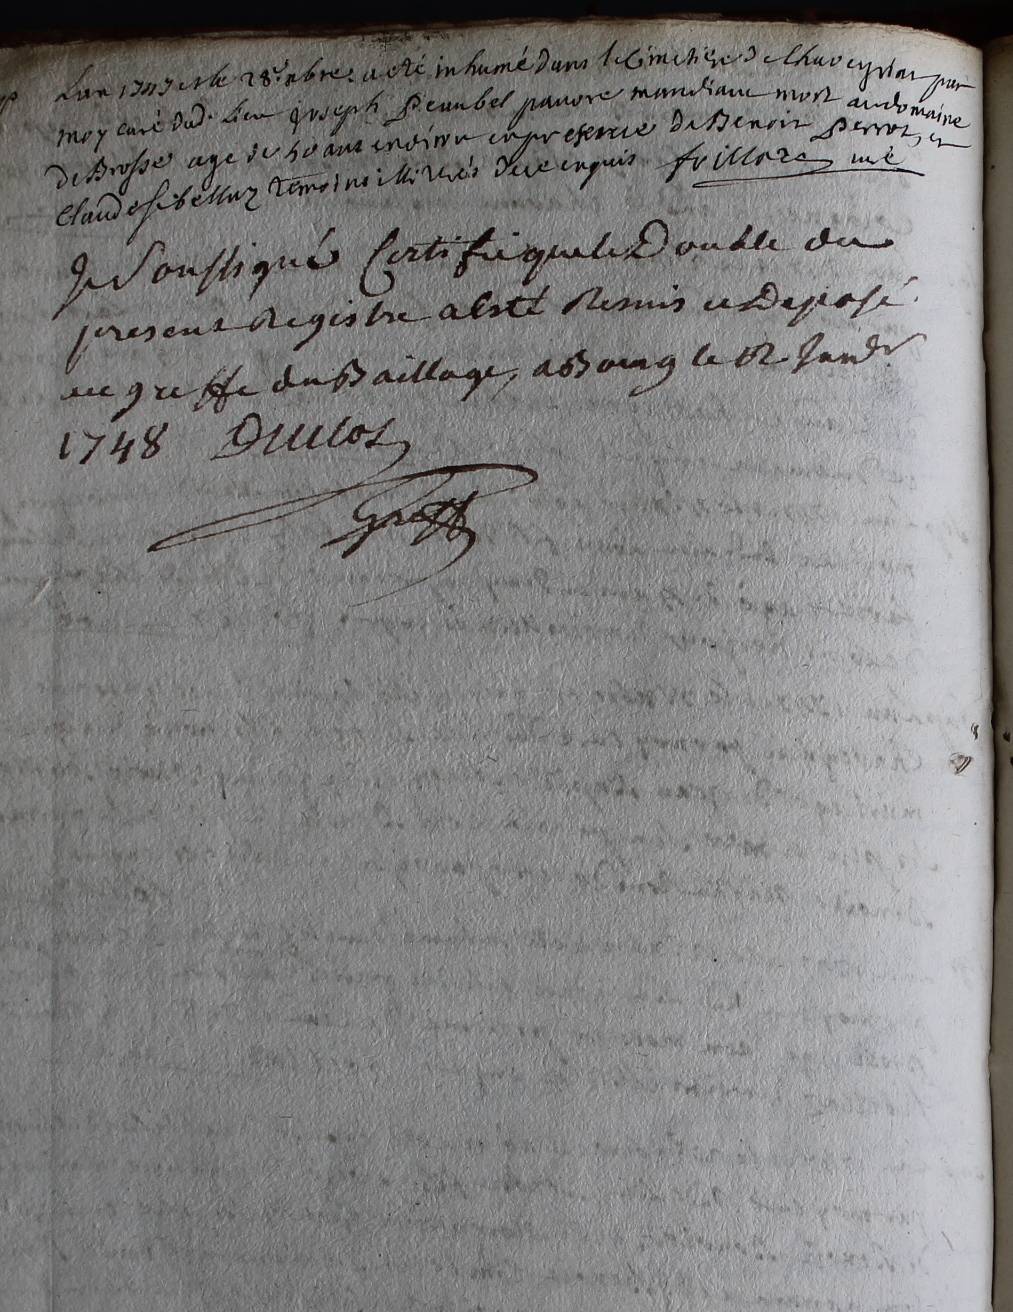 L'an 1747 et le 28 xbre a eté inhumé dans le Cimetiere de Chaveyriat par
moy curé dud. lieu joseph Peaubel pauvre mandiant mort au domaine
de Brosse agé de 50 ans environ en presence de Benoit Perrot, et
Claude sibellaz temoins illiterés de ce enquis frillere curé
Je Soussigné Certifie que le Double du
present Registre a esté Remis et Deposé
au greffe du Bailliage, a Bourg le
1748 Duclos
Greff